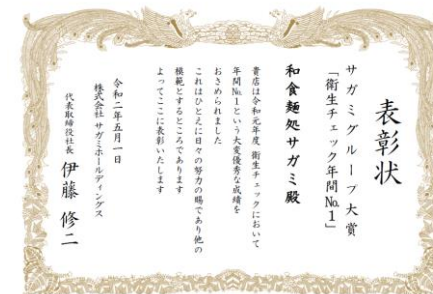 表彰状
サガミグループ大賞
「衛生チェック年間№1」
和食麺処サガミ殿
貴店は令和元年度 衛生チェックにおいて
年間№1という大変優秀な成績を
おさめられました
これはひとえに日々の努力の賜であり他の
模範とするところであります
よってここに表彰いたします
令和二年五月一日
株式会社 サガミホールディングス
代表取締役社長 伊藤 修二